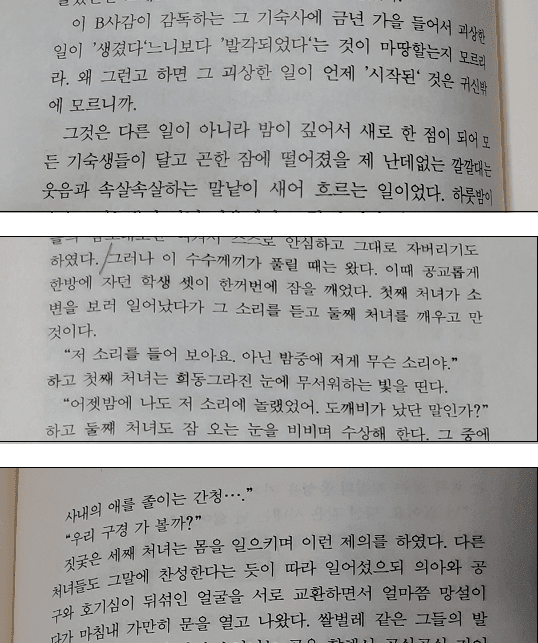 이 B사감이 감독하는 그 기숙사에 금년 가을 들어서 괴상한
일이 '생겼다'느니보다 '발각되었다'는 것이 마땅할는지 모르리
라. 왜 그런고 하면 그 괴상한 일이 언제 '시작된' 것은 귀신밖
에 모르니까.
그것은 다른 일이 아니라 밤이 깊어서 새로 한 점이 되어 모
든 기숙생들이 달고 곤한 잠에 떨어졌을 제 난데없는 깔깔대는
웃음과 속살속살하는 말낱이 새어 흐르는 일이었다. 하룻밤이
안심하고 그대로 자버리기도
하였다. 그러나 이 수수께끼가 풀릴 때는 왔다. 이때 공교롭게
한방에 자던 학생 셋이 한꺼번에 잠을 깨었다. 첫째 처녀가 소
변을 보러 일어났다가 그 소리를 듣고 둘째 처녀를 깨우고 만
것이다.
"저 소리를 들어 보아요. 아닌 밤중에 저게 무슨 소리야."
하고 첫째 처녀는 휘둥그라진 눈에 무서워하는 빛을 띤다.
"어젯밤에 나도 저 소리에 놀랬었어. 도깨비가 났단 말인가?"
하고 둘째 처녀도 잠 오는 눈을 비비며 수상해 한다. 그 중에
사내의 애를 졸이는 간청…."
"우리 구경 가 볼까?"
짓궂은 세째 처녀는 몸을 일으키며 이런 제의를 하였다. 다른
처녀들도 그말에 찬성한다는 듯이 따라 일어섰으되 의아와 공
구와 호기심이 뒤섞인 얼굴을 서로 교환하면서 얼마쯤 망설이
다가 마침내 가만히 문을 열고 나왔다. 쌀벌레 같은 그들의 발